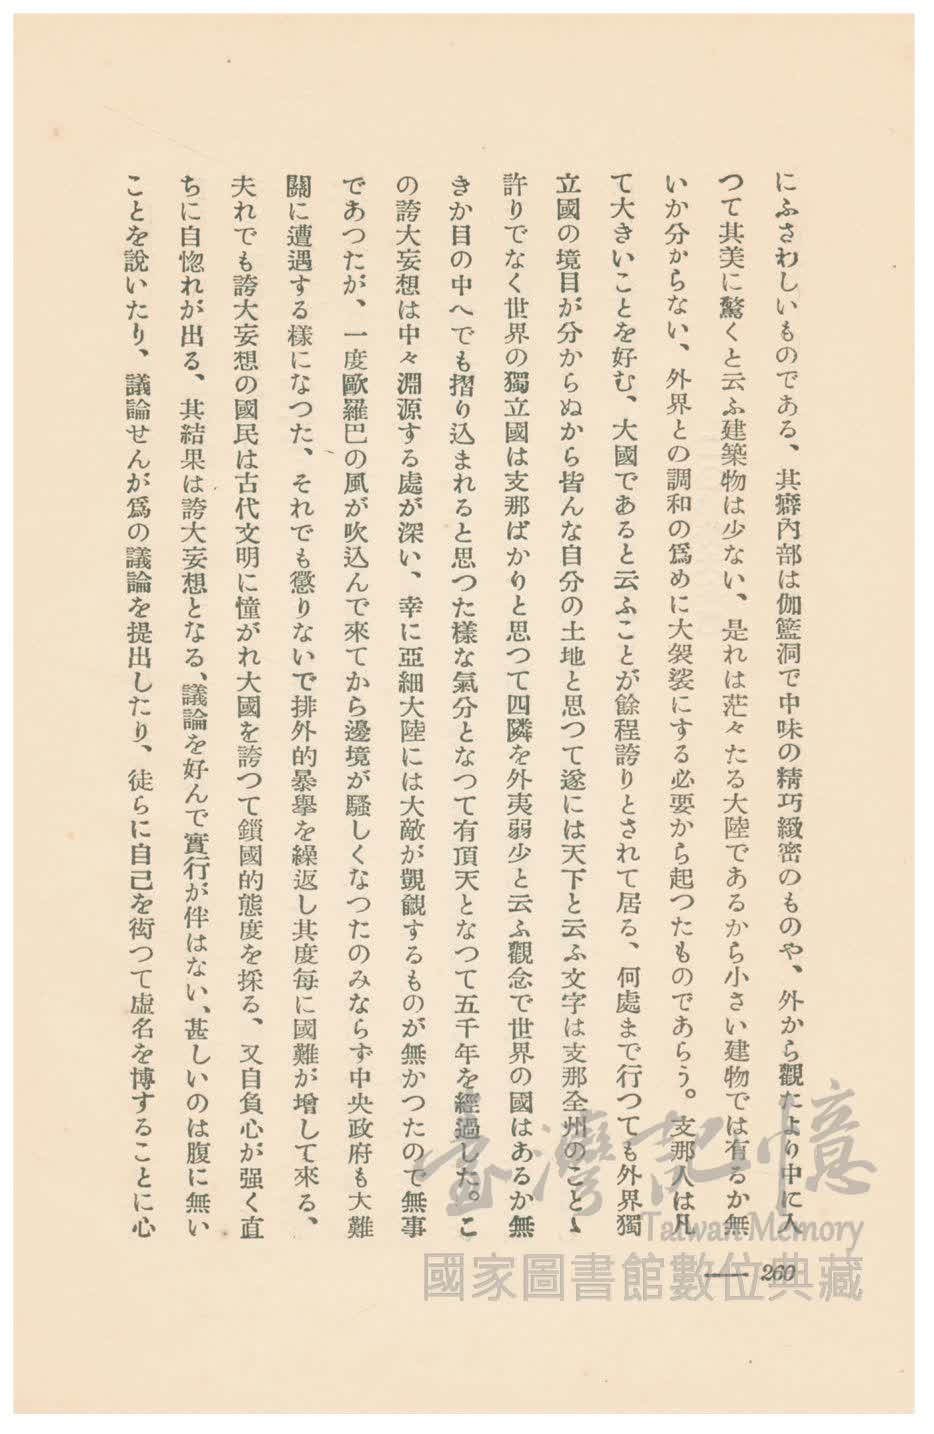 にふさわしいものである、其癖內部は伽籃洞で中味の精巧緻密のものや、外から觀たより中に入
つて其美に驚くと云ふ建築物は少ない、是れは茫々たる大陸であるから小さい建物では有るか無
いか分からない、外界との調和の爲めに大袈裟にする必要から起つたものであらう。支那人は凡
て大きいことを好む、大國であると云ふことが餘程誇りとされて居る、何處まで行つても外界獨
立國の境目が分からぬから皆んな自分の土地と思つて遂には天下と云ふ文字は支那全州のことゝ
許りでなく世界の獨立國は支那ばかりと思つて四隣を外夷弱少と云ふ觀念で世界の國はあるか無
きか目の中へでも摺り込まれると思つた樣な氣分となつて有頂天となつて五千年を經過した。こ
の誇大妄想は中々淵源する處が深い、幸に亞細大陸には大敵が覬覦するものが無かつたので無事
であつたが、一度歐羅巴の風が吹込んで來てから邊境が騷しくなつたのみならず中央政府も大難
關に遭遇する樣になつた、それでも懲りないで排外的暴擧を繰返し其度每に國難が增して來る、
夫れでも誇大妄想の國民は古代文明に憧がれ大國を誇つて鎖國的態度を採る、又自負心が强く直
ちに自惚れが出る、其結果は誇大妄想となる、議論を好んで實行が伴はない、甚しいのは腹に無い
ことを說いたり、議論せんが爲の議論を提出したり、徒らに自己を衒つて虛名を博することに心
260
臺灣記憶
Taiwan Memory
國家圖書館數位典藏